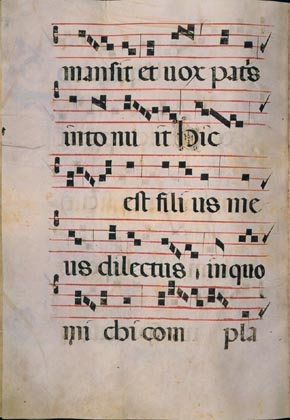 mansit et uox patis
into nu it hic
est fili us me
us dilectus, in quo
mi chi com pla